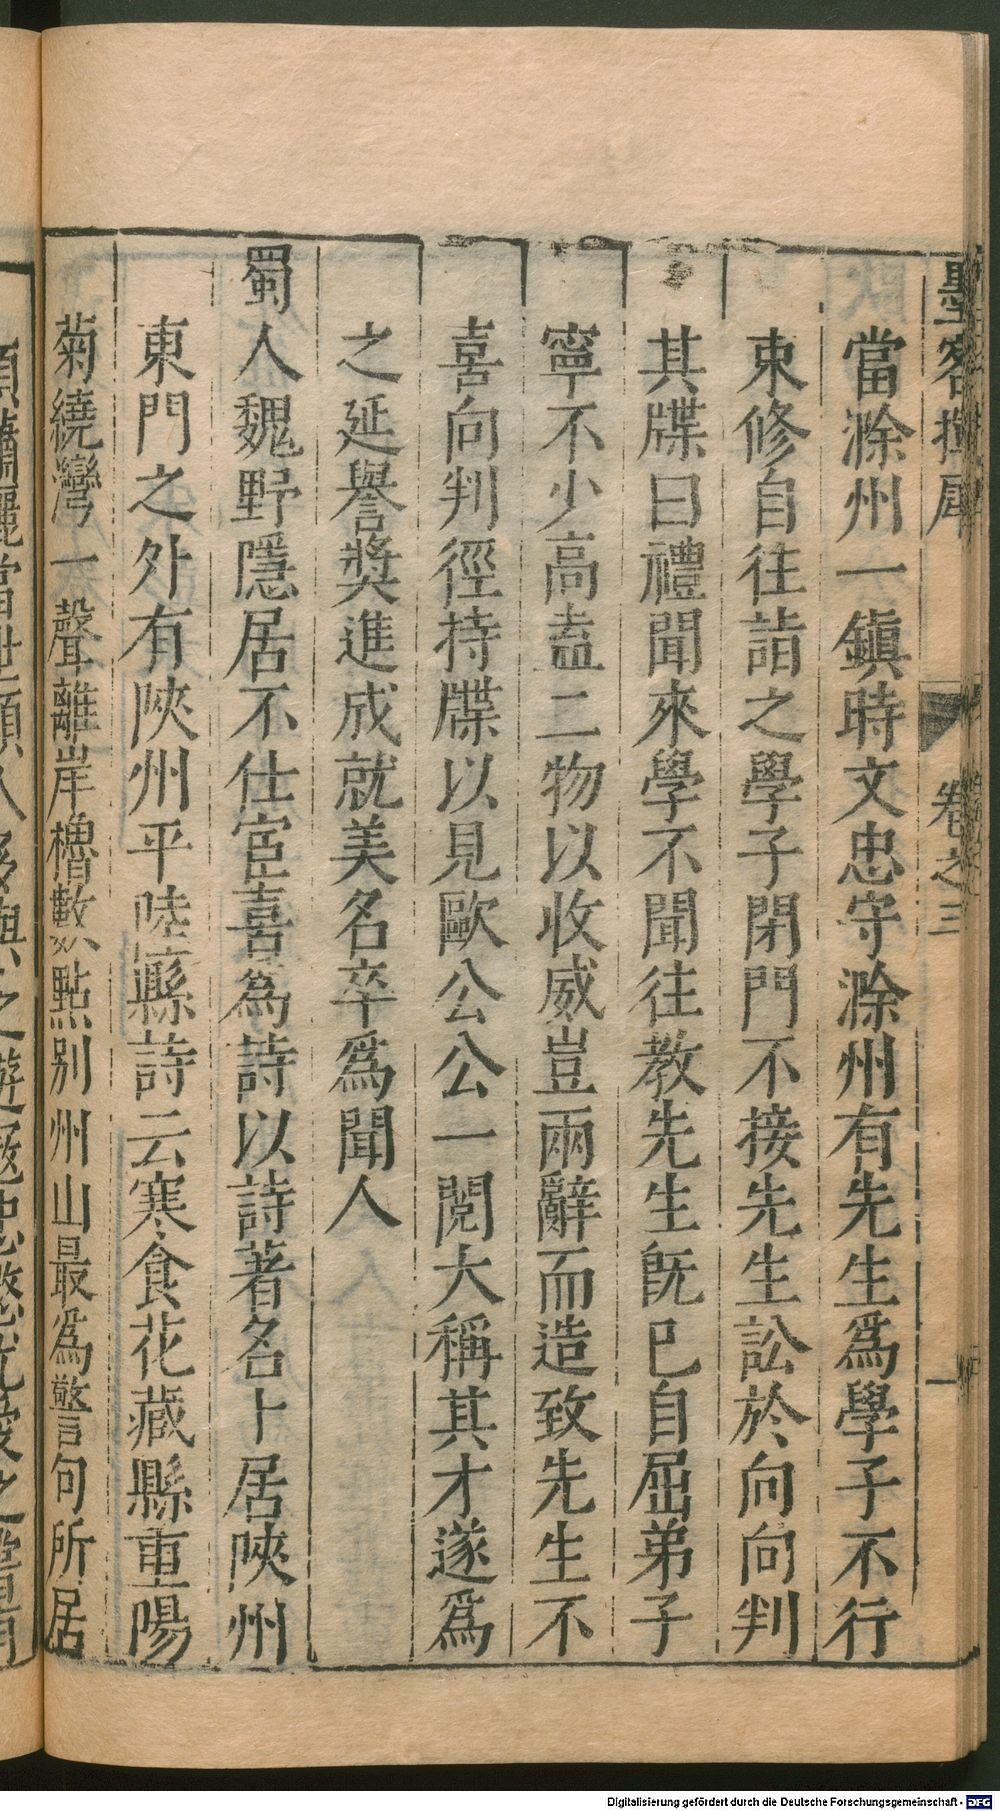 墨客揮犀 卷之三 一
當滁州一鎮時文忠守滁州有先生爲學子不行
束修自往詣之學子閉門不接先生訟於向向判
其牒曰禮聞來學不聞往教先生旣已自屈弟子
寧不少高盍二物以收威豈兩辭而造致先生不
喜向判徑持牒以見歐公公一閱大稱其才遂爲
之延譽獎進成就美名卒爲聞人
蜀人魏野隱居不仕宦喜爲詩以詩著名卜居陜州
東門之外有陜州平陸縣詩云寒食花藏縣重陽
菊繞灣一聲離岸櫓數點别州山最爲警句所居
Digitalisierung gefördert durch die Deutsche Forschungsgemeinschaft - DFG